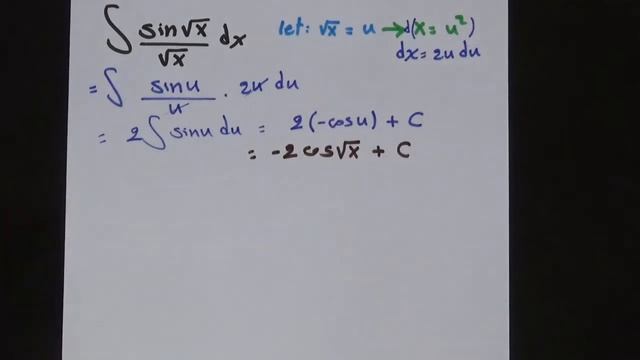 ∫ sin√x / √x dx   let: √x = u → d(x = u²)
dx = 2u du
= ∫ sinu / u . 2u du
= 2∫ sinu du = 2(-cosu) + C
= -2cos√x + C